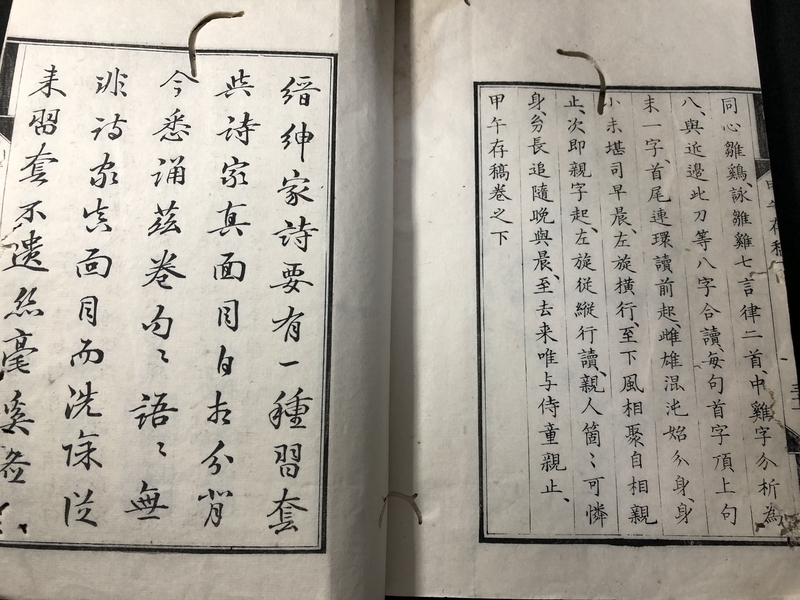 同心雛鷄、詠雛雞七言律二首、中雞字分析為
八、與近邊此刀等八字合讀每句首字頂上句
末一字、首尾連環讀前起、雌雄混沌始分身、身
小未堪司早晨、左旋橫行、至下風相聚自相親
止、次即親字起、左旋從縱行讀、親人箇〻可憐
身、分長追隨晚與晨、至去来唯与侍童親止、
甲午存稿卷之下
甲午存稿
縉紳家詩要有一種習套
與詩家真面目自相分背
今悉誦茲卷句〻語〻無
非詩家真面目而洗除從
来習套不遺絲毫